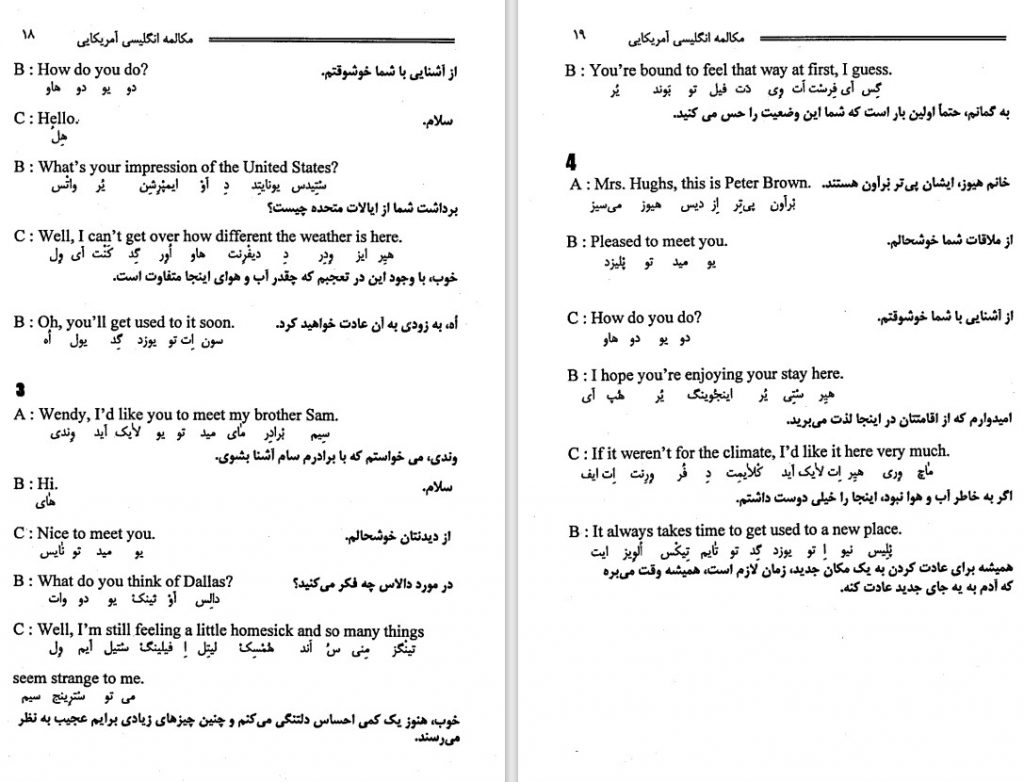 ۱۸ مکالمه انگلیسی آمریکایی
B : How do you do? از آشنایی با شما خوشوقتم.
دو یو دو هاو
C : Hello. سلام.
هِلُ
B : What's your impression of the United States?
سْتِیدس یونایتِد دِ آوْ ایمپْرِشِن یُر واتْس
برداشت شما از ایالات متحده چیست؟
C : Well, I can't get over how different the weather is here.
هیِر ایز وِدِر دِ دیفْرِنت هاو اُوِر گِد کَنْت آی وِل
خوب، با وجود این در تعجبم که چقدر آب و هوای اینجا متفاوت است.
B : Oh, you'll get used to it soon. اُه، به زودی به آن عادت خواهید کرد.
سون اِت تو یوزد گِد یول اُه
3
A : Wendy, I'd like you to meet my brother Sam.
سِیم بْرادِر مای مید تو یو لایک آید وِندی
وندی، می خواستم که با برادرم سام آشنا بشوی.
B : Hi. سلام.
های
C : Nice to meet you. از دیدنتان خوشحالم.
یو مید تو نایس
B : What do you think of Dallas? در مورد دالاس چه فکر می‌کنید؟
دالِس آوْ ثینک یو دو وات
C : Well, I'm still feeling a little homesick and so many things
تینْگز مِنی سُ اَند هُمْسِک لیتِل اِ فیلینگ سْتیل آیم وِل
seem strange to me.
می تو سْتِرِینج سیم
خوب، هنوز یک کمی احساس دلتنگی می‌کنم و چنین چیزهای زیادی برایم عجیب به نظر
می‌رسند.
۱۹ مکالمه انگلیسی آمریکایی
B : You're bound to feel that way at first, I guess.
گِس آی فِرسْت اَت وِی دَت فیل تو بَوند یُر
به گمانم، حتماً اولین بار است که شما این وضعیت را حس می کنید.
4
A : Mrs. Hughs, this is Peter Brown. خانم هیوز، ایشان پی‌تر بْراَون هستند.
بْراَون پی‌تِر اِز دیس هیوز می‌سیز
B : Pleased to meet you. از ملاقات شما خوشحالم.
یو مید تو پْلیزد
C : How do you do? از آشنایی با شما خوشوقتم.
دو یو دو هاو
B : I hope you're enjoying your stay here.
هیِر سْتِی یُر اینجُوینگ یُر هُپ آی
امیدوارم که از اقامتتان در اینجا لذت می‌برید.
C : If it weren't for the climate, I'd like it here very much.
ماچ وِری هیِر اِت لایک آید کْلایمِت دِ فُر وِرِنت اِت ایف
اگر به خاطر آب و هوا نبود، اینجا را خیلی دوست داشتم.
B : It always takes time to get used to a new place.
پْلِیس نیو اِ تو یوزد گِد تو تایم تِیکْس اَلوِیز ایت
همیشه برای عادت کردن به یک مکان جدید، زمان لازم است، همیشه وقت می‌بره
که آدم به یه جای جدید عادت کنه.